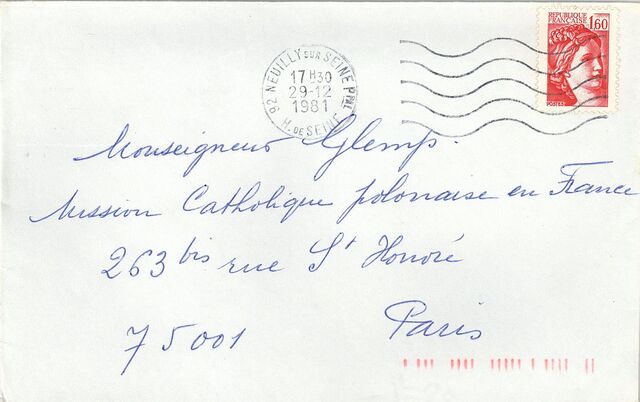 REPUBLIQUE FRANÇAISE 1,60
POSTES
92 NEUILLY SUR SEINE PPAL
17H30
29-12
1981
H. DE SEINE
Monseigneur Glemp.
Mission Catholique polonaise en France
263 bis rue St Honoré
75001 Paris